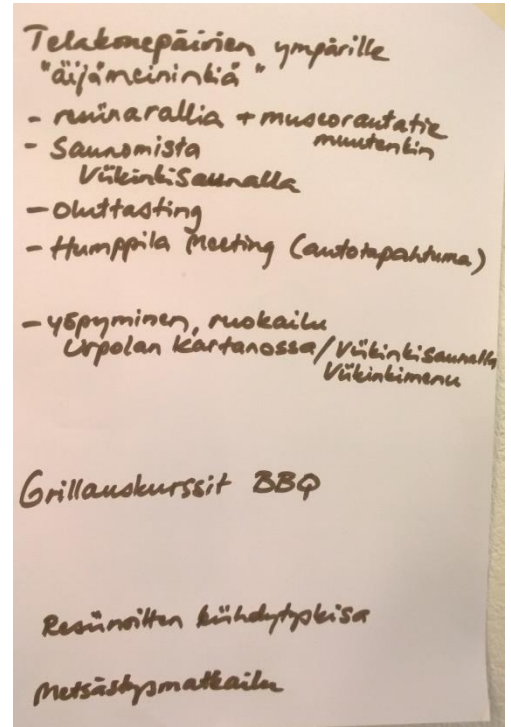 Telakonepäivien ympärille
"äijämeininkiä"
- resiinarallia + museorautatie
muutenkin
- Saunomista
Viikinkisaunalla
- Oluttasting
- Humppila Meeting (autotapahtuma)
- yöpyminen, ruokailu
Urpolan kartanossa/Viikinkisaunalla
Viikinkimenu
Grillauskurssit BBQ
Resiinoitten kiihdytyskisa
Metsästysmatkailu